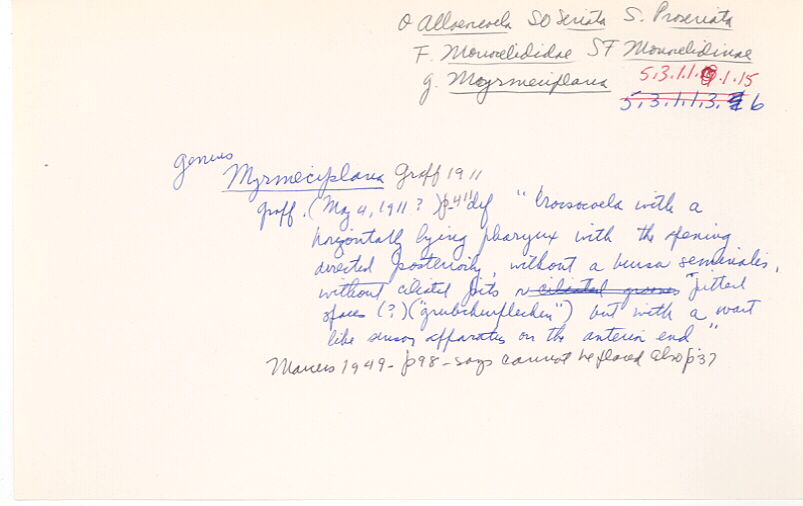 O Alloeocoela SO Seriata S. Proseriata
F. Monocelididae SF Monocelidinae
g. Myrmeciplana 5.3.1.1.9.1.15
5.3.1.1.3.2 6
genus
Myrmeciplana Graff 1911
Graff. (May 4, 1911?) p. 411 def "Crossocoela with a
horizontally lying pharynx with the opening
directed posteriorly, without a bursa seminalis,
without ciliated pits or ciliated grooves "pitted
spaces (?) ("grubchenflecken") but with a wart
like sensory apparatus on the anterior end"
Marcus 1949 - p98 - says cannot be placed also p37